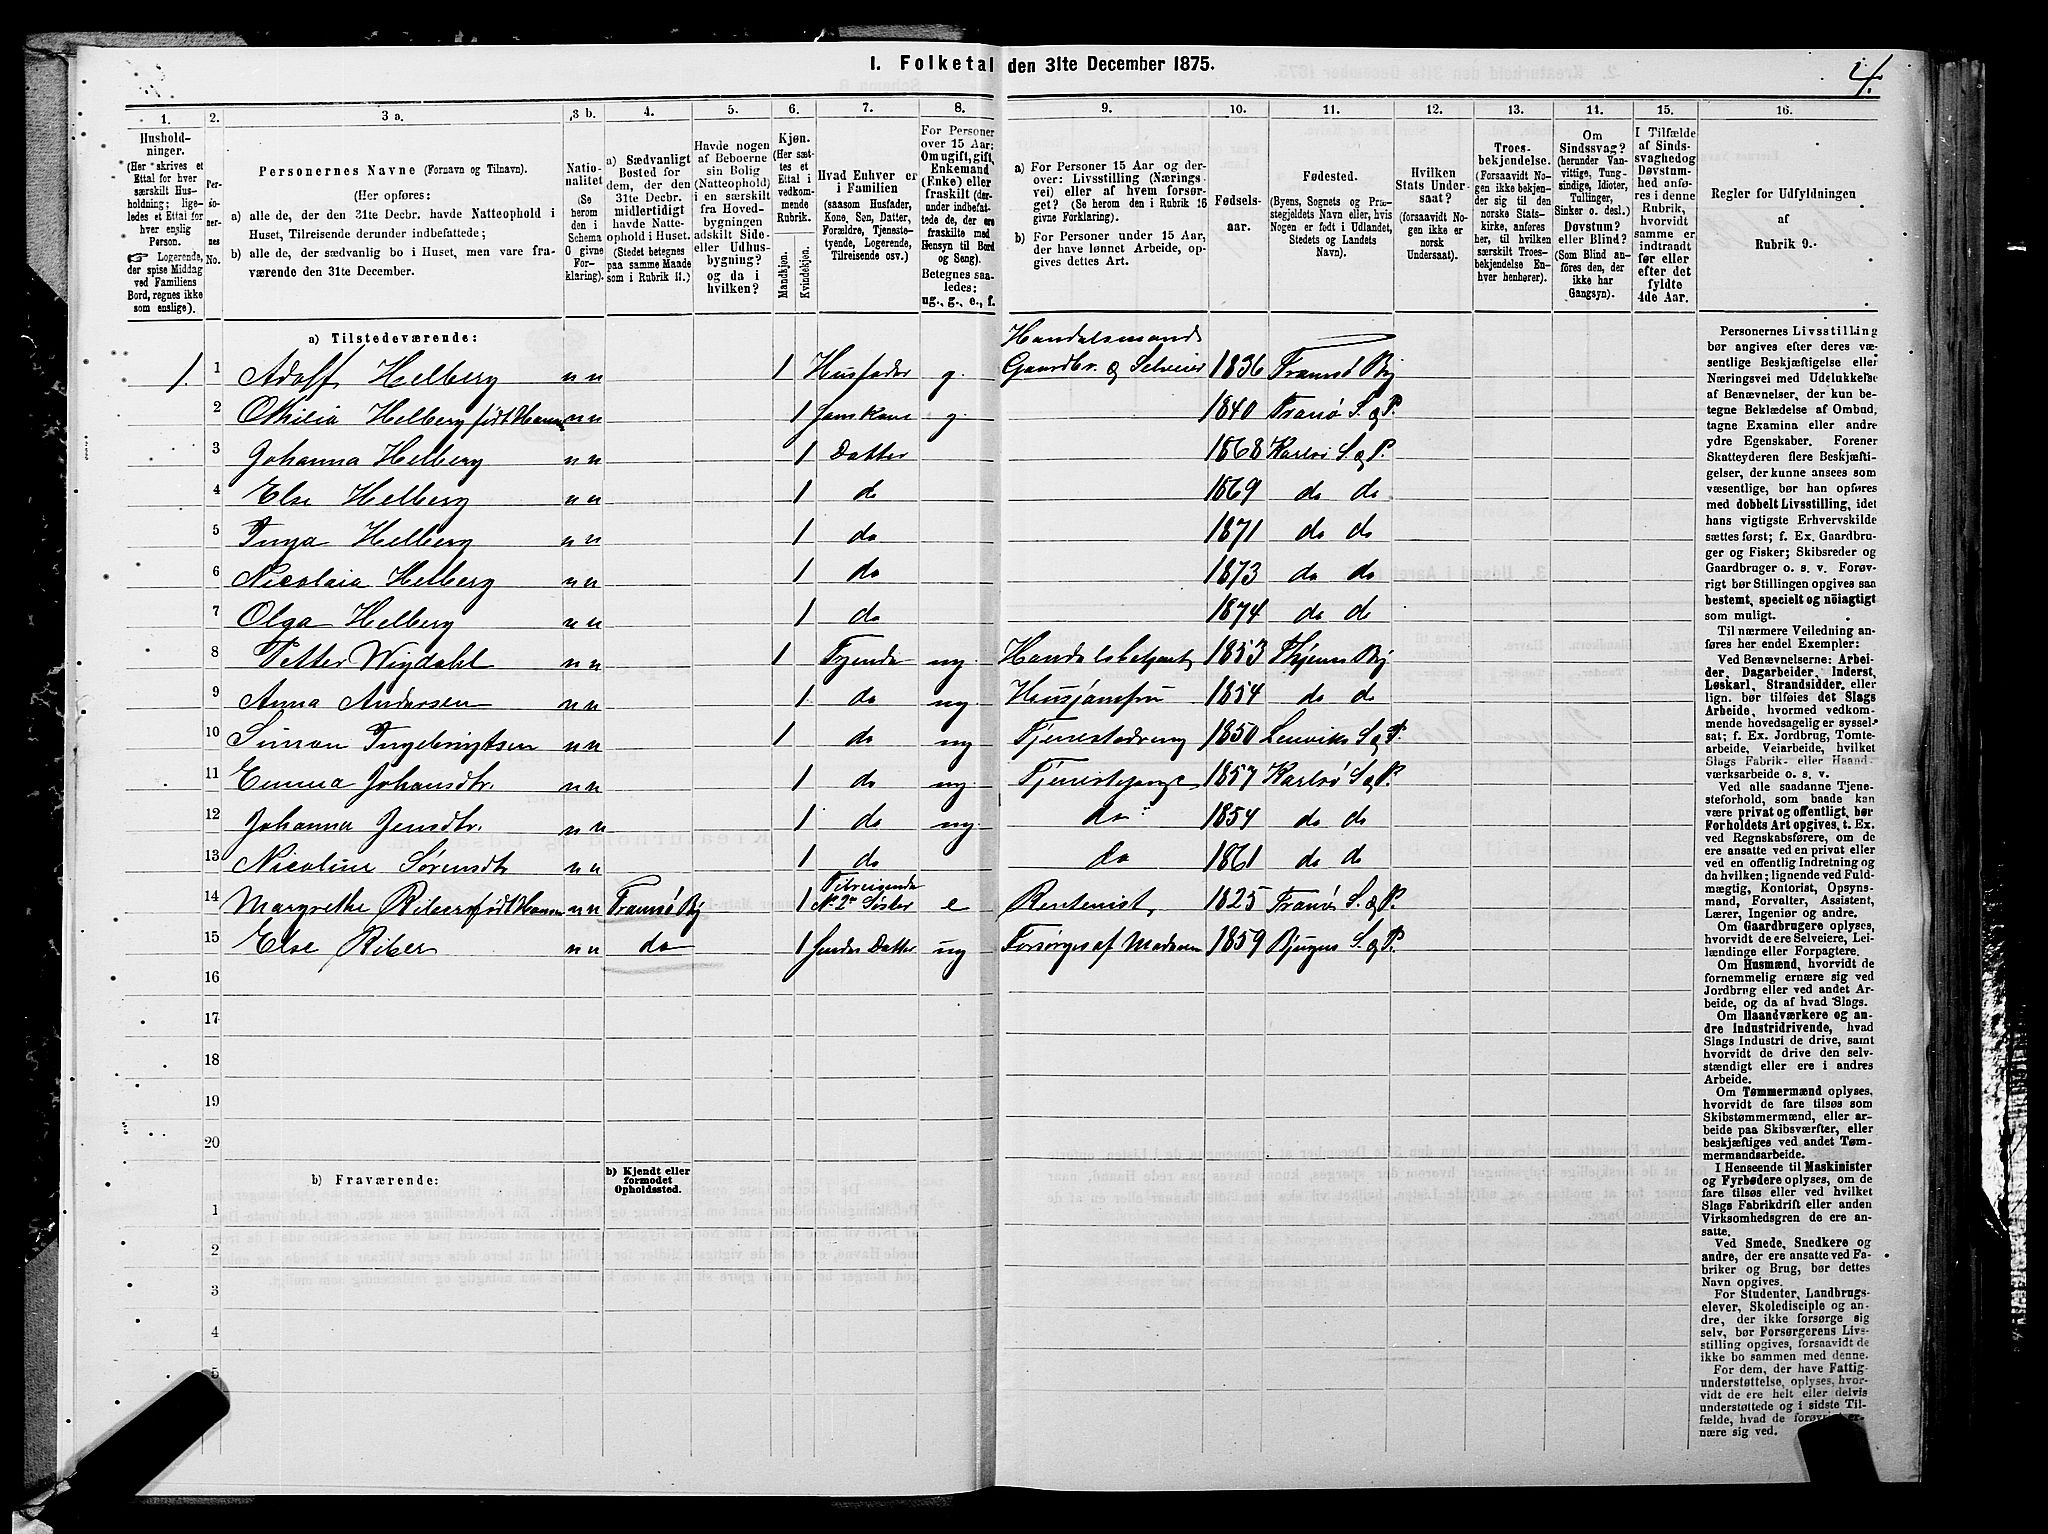 4.
I. Folketal den 31te December 1875.
1. 2. 3 a. 3 b. 4. 5. 6. 7. 8. 9. 10. 11. 12. 13. 14. 15. 16.
Hushold-
ninger.
(Her skrives et
Ettal for hver
særskilt Hus-
holdning; lige-
ledes et Ettal for
hver enslig
Person.
☞ Logerende,
der spise Middag
ved Familiens
Bord, regnes ikke
som enslige).
Per-
soner-
nes
No.
Personernes Navne (Fornavn og Tilnavn).
(Her opføres:
a) alle de, der den 31te Decbr. havde Natteophold i
Huset, Tilreisende derunder indbefattede;
b) alle de, der sædvanlig bo i Huset, men vare fra-
værende den 31te December.
Natio-
nalitet
(Se
herom
den i
Schema
O givne
For-
klaring).
a) Sædvanligt
Bosted for
dem, der den
31te Decbr.
midlertidigt
havde Natte-
ophold i Huset.
(Stedet betegnes
paa samme Maade
som i Rubrik 11.)
Havde nogen
af Beboerne
sin Bolig
(Natteophold)
i en særskilt
fra Hoved-
bygningen
adskilt Side-
eller Udhus-
bygning?
og da i
hvilken?
Kjøn.
(Her sæt-
tes et
Ettal i
vedkom-
mende
Rubrik.
Mandkjøn.
Kvindekjøn.
Hvad Enhver er
i Familien
(saasom Husfader,
Kone, Søn, Datter,
Forældre, Tjeneste-
tyende, Logerende,
Tilreisende osv.)
For Personer
over 15 Aar:
Om ugift, gift,
Enkemand
(Enke) eller
fraskilt (der-
under indbefat-
tede de, der ere
fraskilte med
Hensyn til Bord
og Seng).
Betegnes saa-
ledes:
ug., g., e., f.
a) For Personer 15 Aar og der-
over: Livsstilling (Nærings-
vei) eller af hvem forsør-
get? (Se herom den i Rubrik 16
givne Forklaring).
b) For Personer under 15 Aar,
der have lønnet Arbeide, op-
gives dettes Art.
Fødsels-
aar.
Fødested.
(Byens, Sognets og Præ-
stegjeldets Navn eller, hvis
Nogen er født i Udlandet,
Stedets og Landets
Navn).
Hvilken
Stats Under-
saat?
(forsaavidt No-
gen ikke er
norsk
Undersaat).
Troes-
bekjendelse.
(Forsaavidt No-
gen ikke bekjen-
der sig til den
norske Stats-
kirke, anføres
her, til hvilken
særskilt Troes-
bekjendelse En-
hver henhører).
Om
Sindssvag?
(herunder Van-
vittige, Tung-
sindige, Idioter,
Tullinger,
Sinker o. desl.)
Døvstum?
eller Blind?
(Som Blind an-
føres den, der
ikke har
Gangsyn).
I Tilfælde
af Sinds-
svaghed og
Døvstum-
hed anfø-
res i denne
Rubrik,
hvorvidt
samme er
indtraadt
før eller
efter det
fyldte
4de Aar.
Regler for Udfyldningen
af
Rubrik 9.
a) Tilstedeværende:
1. 1 Adolf Helberg n n 1 Husfader g. Handelsmand Gaardbr. og Selveier 1836 Tromsø By
2 Othilia Helberg født n n 1 hans Kone g 1840 Tranø S. og P.
3 Johanna Helberg n n 1 Datter 1868 Karlsø S. og P.
4 Else Helberg n n 1 do 1869 do do
5 Inga Helberg n n 1 do 1871 do do
6 Nicolaia Helberg n n 1 do 1873 do do
7 Olga Helberg n n 1 do 1874 do do
8 Petter Wigdahl n n 1 Tyende ug. Handelsbetjent 1853 Thjems By
9 Anna Andersen n n 1 do ug. Husjomfru 1854 do do
10 Simon Ingebrigtsen n n 1 do ug Tjenestedreng 1850 Lenviks S og P.
11 Emma Johansdtr. n n 1 do ug. Tjenestepige 1857 Karlsø S og P.
12 Johanna Jensdtr. n n 1 do ug. do 1854 do do
13 Nicoline Sørensdtr n n 1 do do 1861 do do
14 Margrethe Riber født n n Tromsø By 1 Tilreisende No 2s Søster e Rentenist 1825 Tranø S. og P.
15 Else Riber n n do 1 hendes Datter ug Forsørges af Moderen 1859 Bjugns S. og P.
16
17
18
19
20
b) Fraværende:
b) Kjendt eller
formodet
Opholdssted.
1
2
3
4
5
Personernes Livsstilling
bør angives efter deres væ-
sentlige Beskjæftigelse eller
Næringsvei med Udelukkelse
af Benævnelser, der kun be-
tegne Beklædelse af Ombud,
tagne Examina eller andre
ydre Egenskaber. Forener
Skatteyderen flere Beskjæfti-
gelser, der kunne ansees som
væsentlige, bør han opføres
med dobbelt Livsstilling, idet
hans vigtigste Erhvervskilde
sættes først; f. Ex. Gaardbru-
ger og Fisker; Skibsreder og
Gaardbruger o. s. v. Forøv-
rigt bør Stillingen opgives saa
bestemt, specielt og nöiagtigt
som muligt.
Til nærmere Veiledning an-
føres her endel Exempler:
Ved Benævnelserne: Arbei-
der, Dagarbeider, Inderst,
Løskarl, Strandsidder, eller
lign. bør tilføies det Slags
Arbeide, hvormed vedkom-
mende hovedsagelig er syssel-
sat; f. Ex. Jordbrug, Tomte-
arbeide, Veiarbeide, hvilket
Slags Fabrik- eller Haand-
værksarbeide o. s. v.
Ved alle saadanne Tjene-
steforhold, som baade kan
være privat og offentligt, bør
Forholdets Art opgives, t. Ex.
ved Regnskabsførere, om de
ere ansatte ved en privat eller
ved en offentlig Indretning og
da hvilken; lignende ved Fuld-
mægtig, Kontorist, Opsyns-
mand, Forvalter, Assistent,
Lærer, Ingeniør og andre.
Om Gaardbrugere oplyses,
hvorvidt de ere Selveiere, Lei-
lændinge eller Forpagtere.
Om Husmænd, hvorvidt de
fornemmelig ernære sig ved
Jordbrug eller ved andet Ar-
beide, og da af hvad Slags.
Om Haandværkere og an-
dre Industridrivende, hvad
Slags Industri de drive, samt
hvorvidt de drive den selv-
stændigt eller ere i andres
Arbeide.
Om Tømmermænd oplyses,
hvorvidt de fare tilsøs som
Skibstømmermænd, eller ar-
beide paa Skibsværfter, eller
beskjæftiges ved andet Tøm-
mermandsarbeide.
I Henseende til Maskinister
og Fyrbødere oplyses, om de
fare tilsøs eller ved hvilket
Slags Fabrikdrift eller anden
Virksomhedsgren de ere an-
satte.
Ved Smede, Snedkere og
andre, der ere ansatte ved Fa-
briker og Brug, bør dettes
Navn opgives.
For Studenter, Landbrugs-
elever, Skoledisciple og an-
dre, der ikke forsørge sig
selv, bør Forsørgerens Livs-
stilling opgives, forsaavidt de
ikke bo sammen med denne.
For dem, der have Fattig-
understøttelse, oplyses, hvor-
vidt de ere helt eller delvis
understøttede og i sidste Til-
fælde, hvad de forøvrigt er-
nære sig ved.